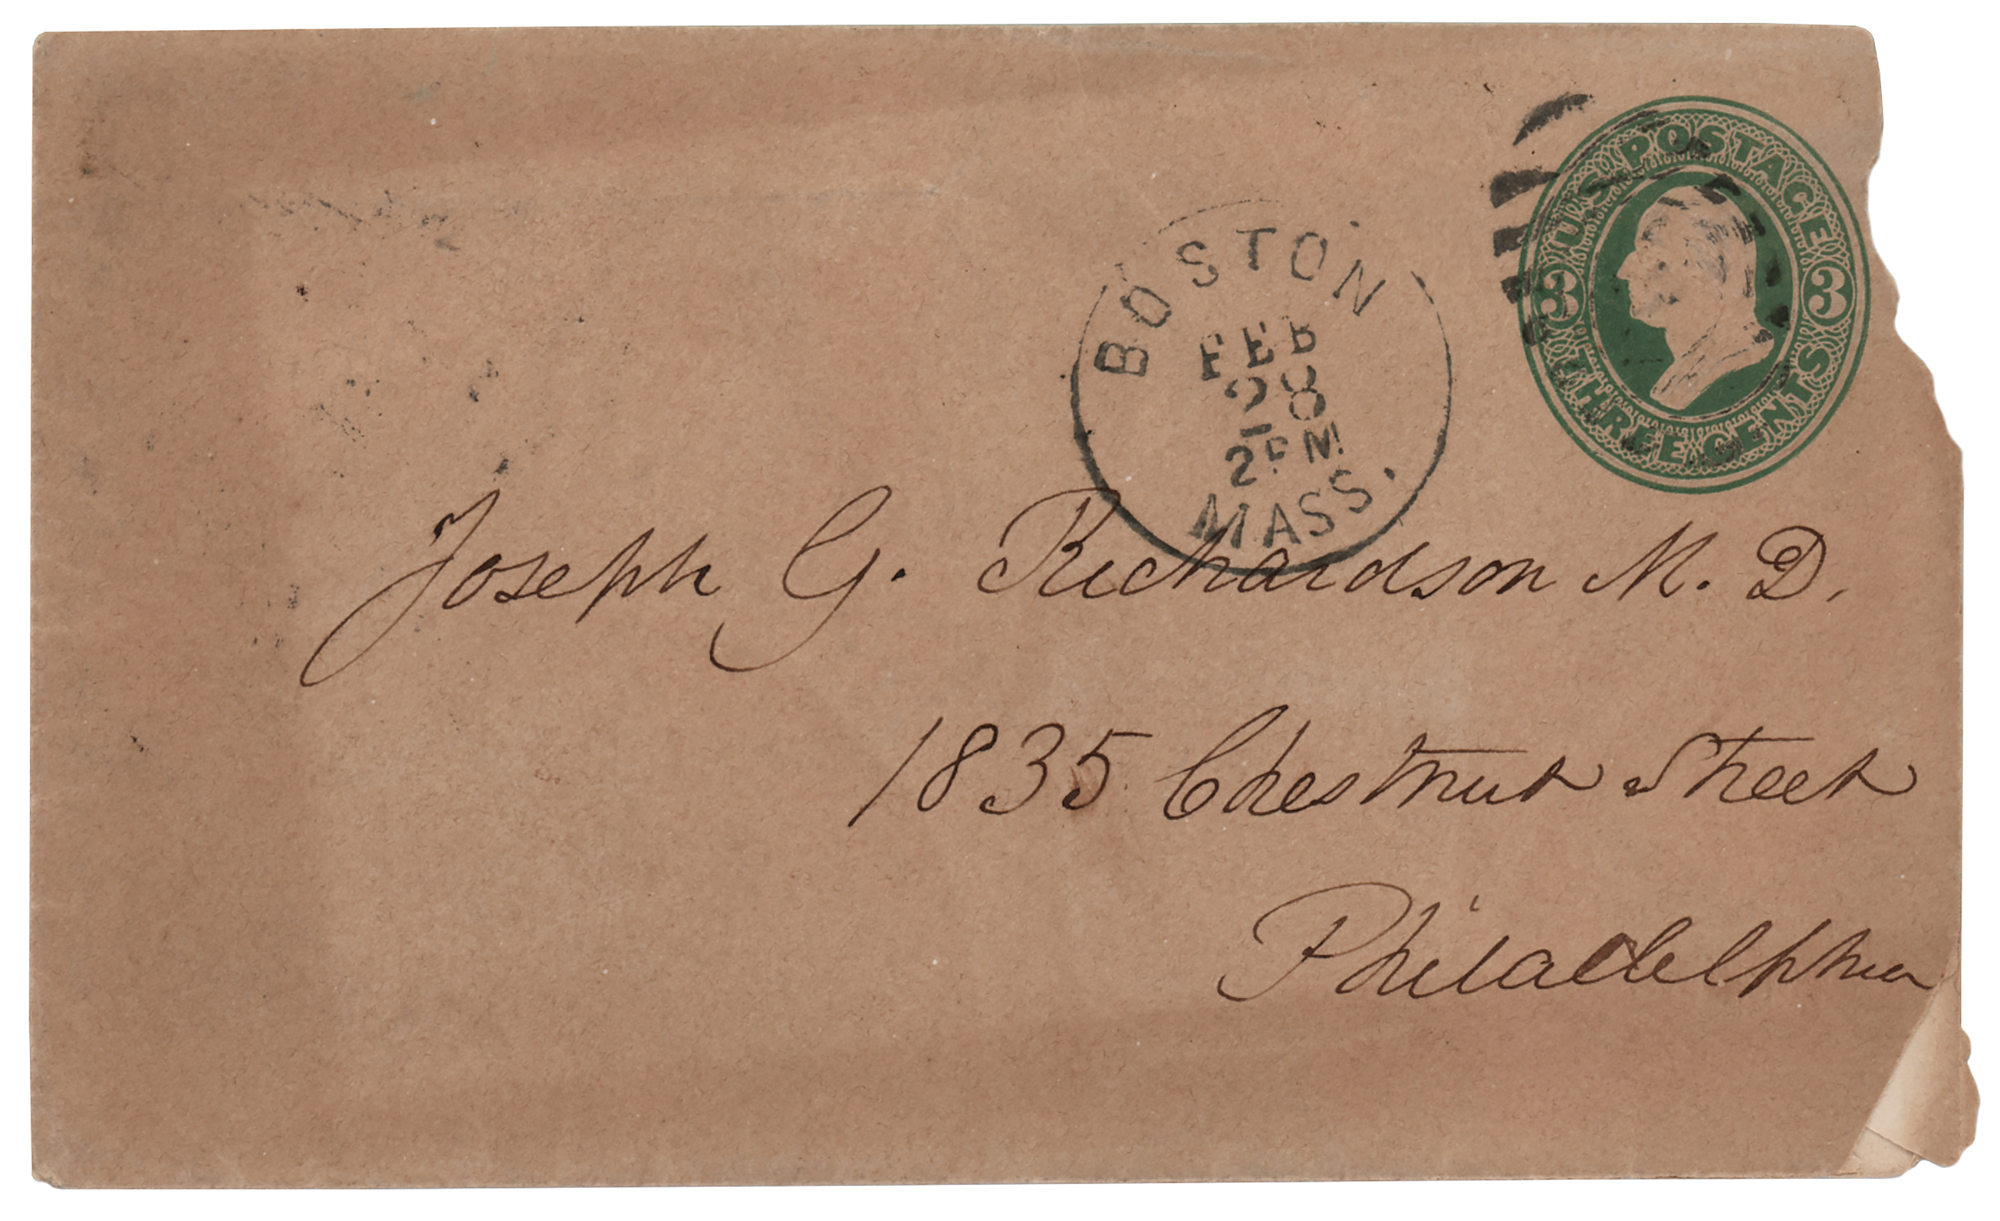 U.S. POSTAGE
3 3
THREE CENTS
BOSTON
FEB
28
2 PM
MASS.
Joseph G. Richardson M. D.
1835 Chestnut Street
Philadelphia